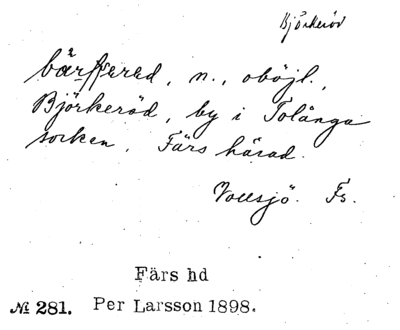 Björkeröd
n., oböjl.,
Björkeröd, by i Tolånga
socken, Färs härad.
Vollsjö. Fs.
Färs hd
№ 281. Per Larsson 1898.